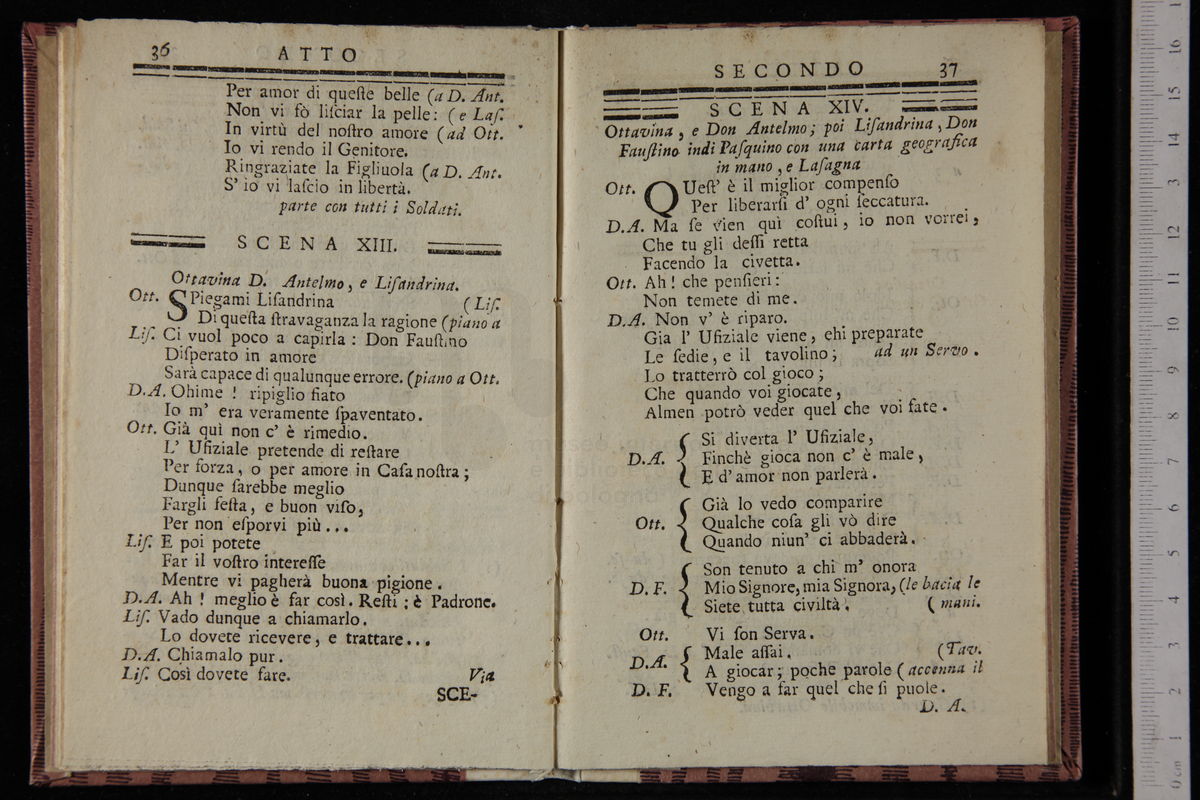 36 ATTO
Per amor di queſte belle (a D. Ant.
Non vi fò liſciar la pelle: (e Laſ.
In virtù del noſtro amore (ad Ott.
Io vi rendo il Genitore.
Ringraziate la Figliuola (a D. Ant.
S' io vi laſcio in libertà.
parte con tutti i Soldati.
SCENA XIII.
Ottavina D. Antelmo, e Liſandrina.
Ott. SPiegami Liſandrina (Liſ.
Di queſta ſtravaganza la ragione (piano a
Liſ. Ci vuol poco a capirla : Don Fauſtino
Diſperato in amore
Sarà capace di qualunque errore. (piano a Ott.
D.A. Ohime ! ripiglio fiato
Io m' era veramente ſpaventato.
Ott. Già quì non c' è rimedio.
L' Ufiziale pretende di reſtare
Per forza, o per amore in Caſa noſtra;
Dunque ſarebbe meglio
Fargli feſta, e buon viſo,
Per non eſporvi più...
Liſ. E poi potete
Far il voſtro intereſſe
Mentre vi pagherà buona pigione.
D.A. Ah ! meglio è far così. Reſti ; è Padrone.
Liſ. Vado dunque a chiamarlo.
Lo dovete ricevere, e trattare...
D.A. Chiamalo pur.
Liſ. Così dovete fare. Via
SCE-
SECONDO 37
SCENA XIV.
Ottavina, e Don Antelmo; poi Liſandrina, Don
Fauſtino indi Paſquino con una carta geografica
in mano, e Laſagna
Ott. QUeſt' è il miglior compenſo
Per liberarſi d' ogni ſeccatura.
D.A. Ma ſe vien quì coſtui, io non vorrei,
Che tu gli deſſi retta
Facendo la civetta.
Ott. Ah! che penſieri:
Non temete di me.
D.A. Non v' è riparo.
Gia l' Ufiziale viene, ehi preparate
Le ſedie, e il tavolino; ad un Servo.
Lo tratterrò col gioco;
Che quando voi giocate,
Almen potrò veder quel che voi fate.
Si diverta l' Ufiziale,
D.A. Finchè gioca non c' è male,
E d' amor non parlerà.
Già lo vedo comparire
Ott. Qualche coſa gli vò dire
Quando niun' ci abbaderà.
Son tenuto a chi m' onora
D. F. Mio Signore, mia Signora, (le bacia le
Siete tutta civiltà. (mani.
Ott. Vi ſon Serva.
D.A. Male aſſai. (Tav.
A giocar; poche parole (accenna il
D. F. Vengo a far quel che ſi puole.
D. A.